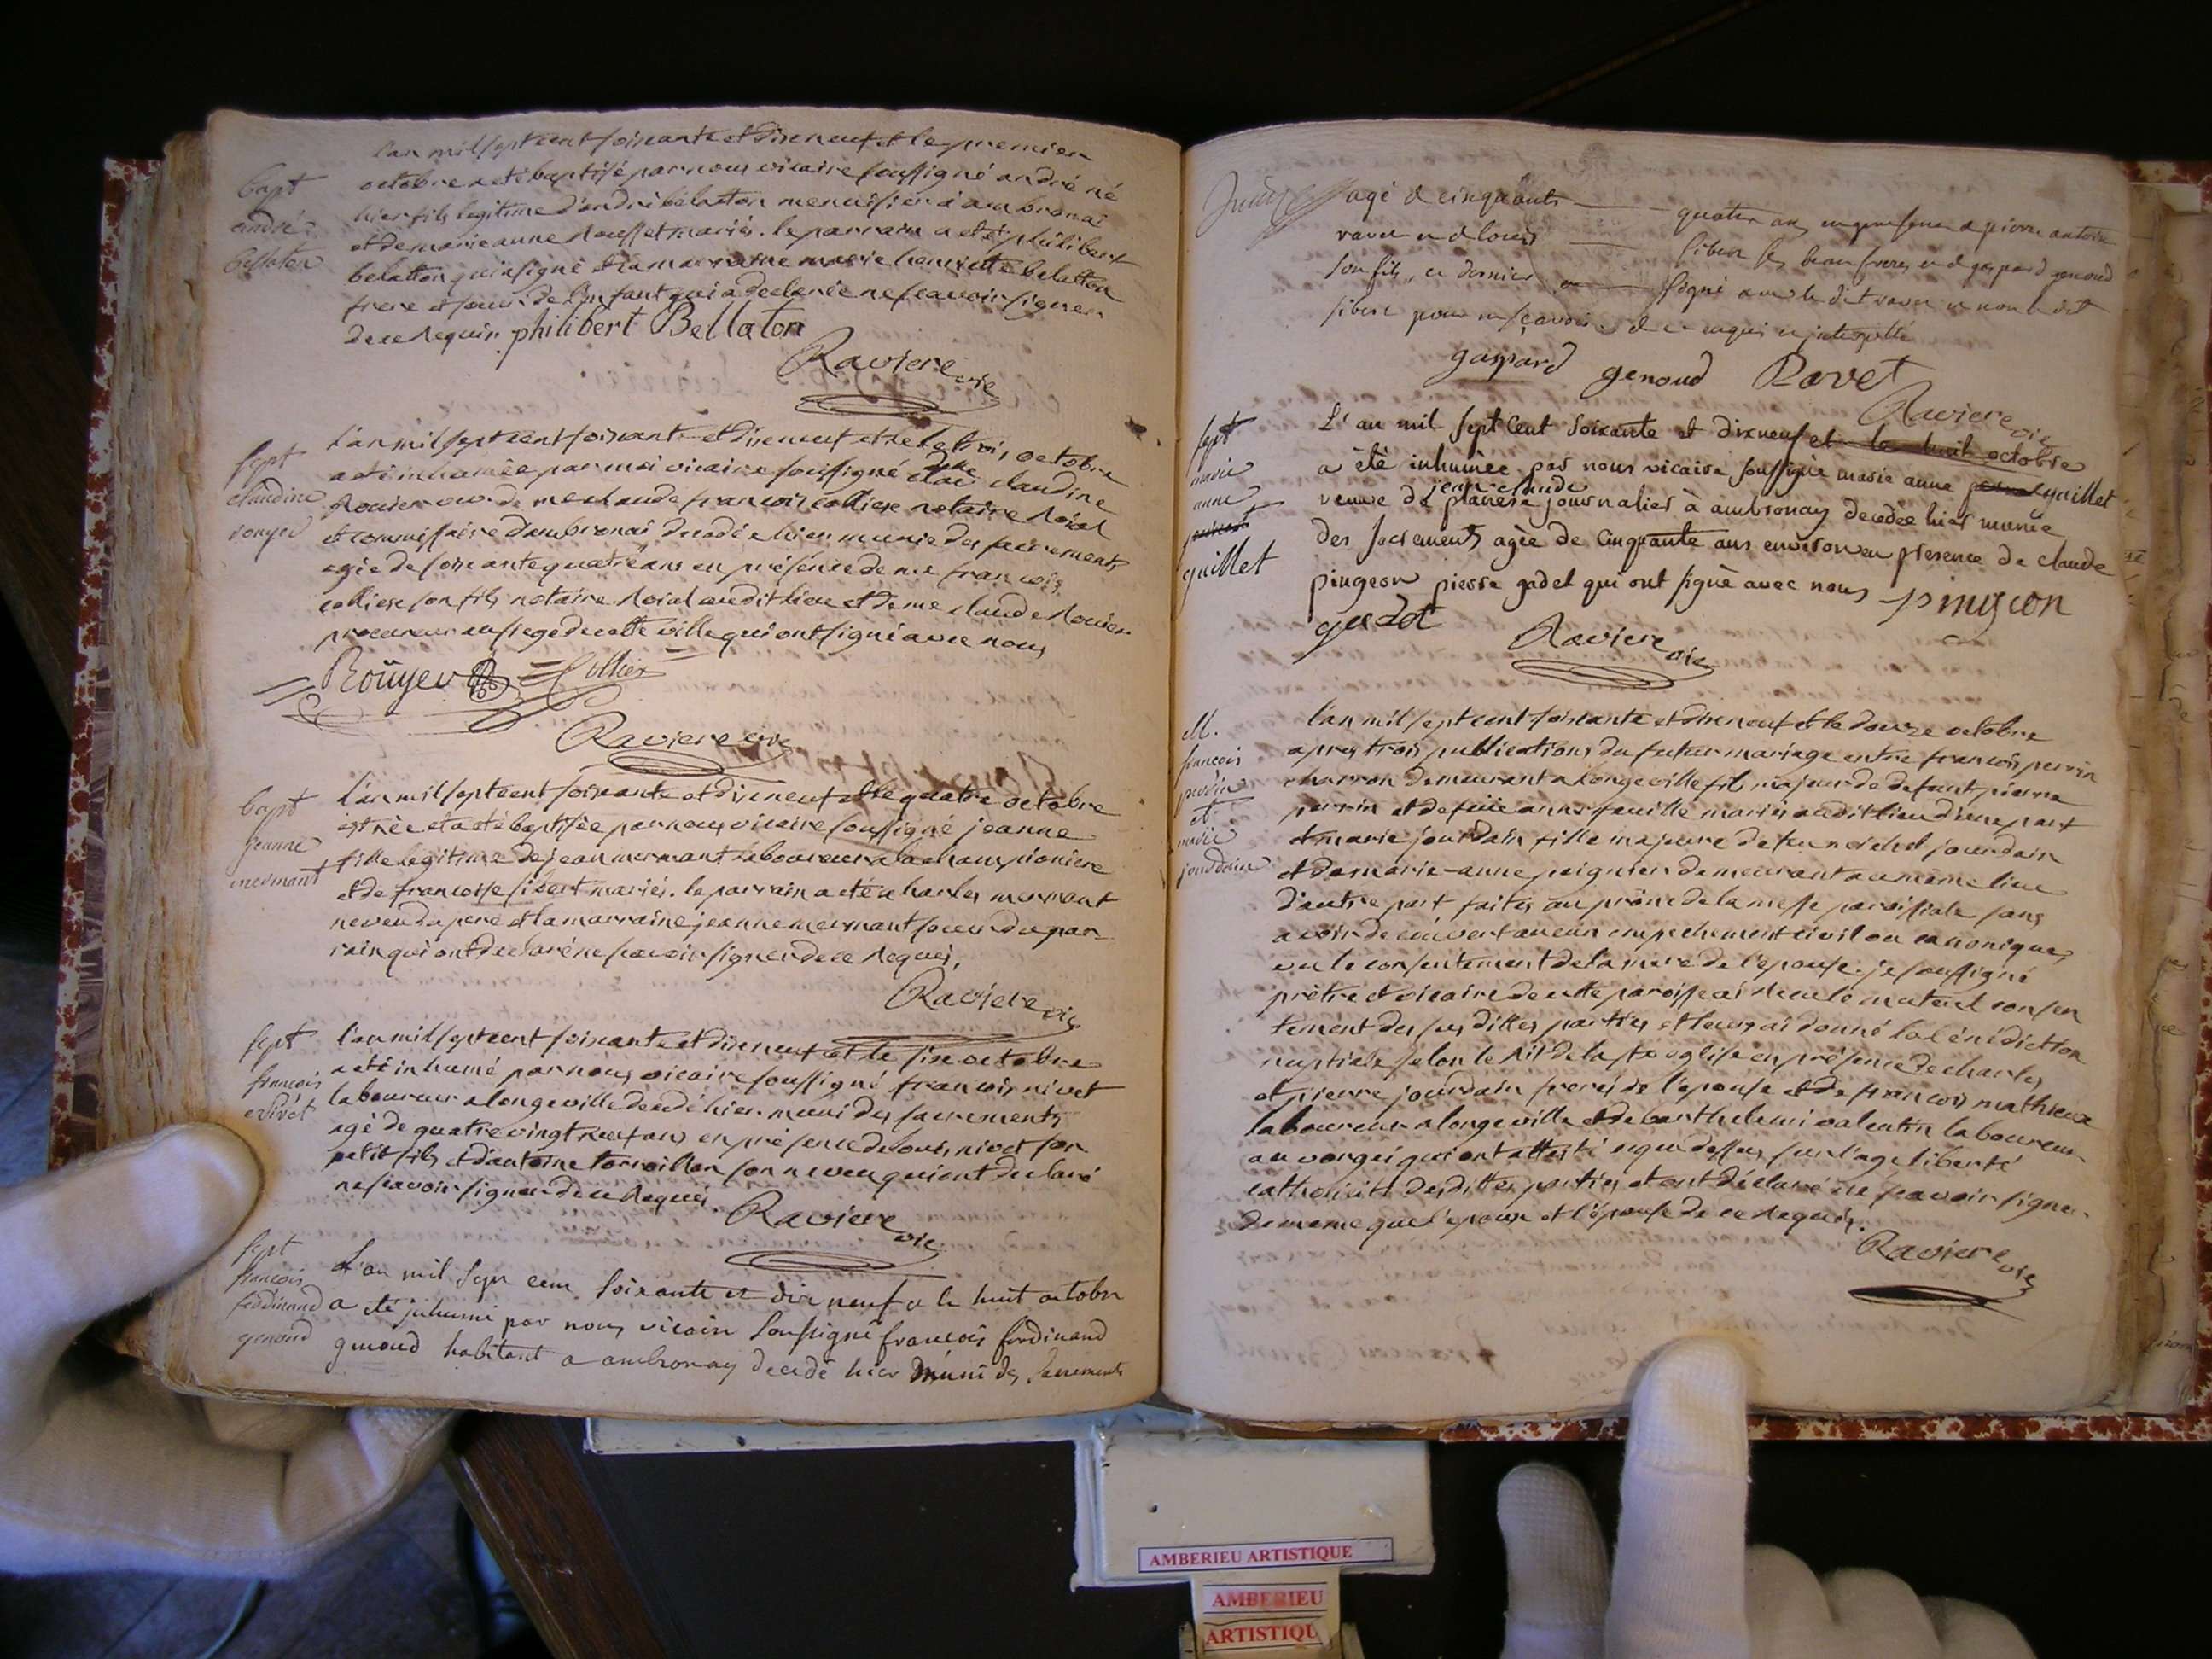 bapt
andré
bellaton
l'an mil sept cent soixante et dix neuf et le premier
octobre a eté baptisé par nous vicaire soussigné andré né
hier fils legitime d'andré bélatton menuisier a ambronai
et de marie anne mariés. le parrain a eté philibert
belatton qui a signé et la marraine marie henriette belatton
frere et soeur de l'enfant qui a declarée ne scavoir signer
de ce requis. philibert Bellaton
Raviere vic
sept
claudine
rouyer
l'an mil sept cent soixante et dix neuf et le trois octobre
a été inhumée par moi vicaire soussigné claudine
Rouier de me claude francois colliex notaire Roial
et commissaire d'ambronai decedée hier munie des sacrements
agée de soixante quatre ans en présence de me francois
colliex son fils notaire Roial au dit lieu et de me claude Rouier
procureur au siege de cette ville qui ont signé avec nous
Roüyer Collier
Raviere vic
bapt
jeanne
mermant
l'an mil sept cent soixante et dix neuf et le quatre octobre
est née et a eté baptisée par nous vicaire soussigné jeanne
fille legitime de jean mermant laboureur a la championiere
et de francoise sibert mariés. le parrain a eté charles mermant
neveu du pere et la marraine jeanne mermant soeur du par-
rain qui ont declaré ne scavoir signer de ce Requis.
Raviere vic
sept
francois
nivet
l'an mil sept cent soixante et dix neuf et le six octobre
a eté inhumé par nous vicaire soussigné francois nivet
laboureur a longeville decedé hier muni des sacrements
agé de quatre vingt neuf ans en présence de louis nivet son
petit fils et d'antoine son neveu qui ont declaré
ne scavoir signer de ce Requis.
Raviere vic
sept
francois
ferdinand
genoud
L'an mil sept cent soixante et dix neuf et le huit octobre
a eté inhumé par nous vicaire soussigné francois ferdinand
genoud habitant a ambronay decedé hier muni des sacrements
agé de cinquante quatre ans en presence de pierre antoine
ravet et de louis sibert ses beau freres et de gaspard genoud
son fils, ce dernier a signé avec le dit ravet et non le dit
sibert pour ne sçavoir. de ce requis et interpellé
gaspard genoud Ravet
Raviere vic
sept
marie
anne
guillet
L'an mil sept Cent soixante et dix neuf et le huit octobre
a été inhumée par nous vicaire soussigné marie anne guillet
jean claude
veuve de journalier à ambronay decedée hier munie
des sacrements agée de cinquante ans environ en presence de claude
pingeon pierre gadet qui ont signé avec nous pingeon
gadet
Raviere vic
M.
francois
perrin
et
marie
jourdain
l'an mil sept cent soixante et dix neuf et le douze octobre
apres trois publications du futur mariage entre francois perrin
charron demeurant a longeville fils majeur de defunt pierre
perrin et de anne mariés au dit lieu d'une part
et marie jourdain fille majeure de feu michel jourdain
et de marie-anne peignier demeurant au même lieu
d'autre part faites au prône de la messe paroissiale sans
avoir decouvert aucun empechement civil ou canonique,
vu le consentement de la mere de l'epouse. je soussigné
prêtre et vicaire de cette paroisse ai Recu le mutuel consen
tement des susdittes parties et leurs ai donné la bénédiction
nuptiale selon le Rit de la ste eglise en présence de charles
et pierre jourdain freres de l'epouse et de francois mathieux
laboureur a longeville et de barthelemi valentin laboureur
au qui ont attesté sur l'age liberté
catholicité desdittes parties et ont déclaré ne scavoir signer
de meme que l'epoux et l'épouse de ce Requis.
Raviere vic
AMBERIEU ARTISTIQUE
AMBERIEU
ARTISTIQU